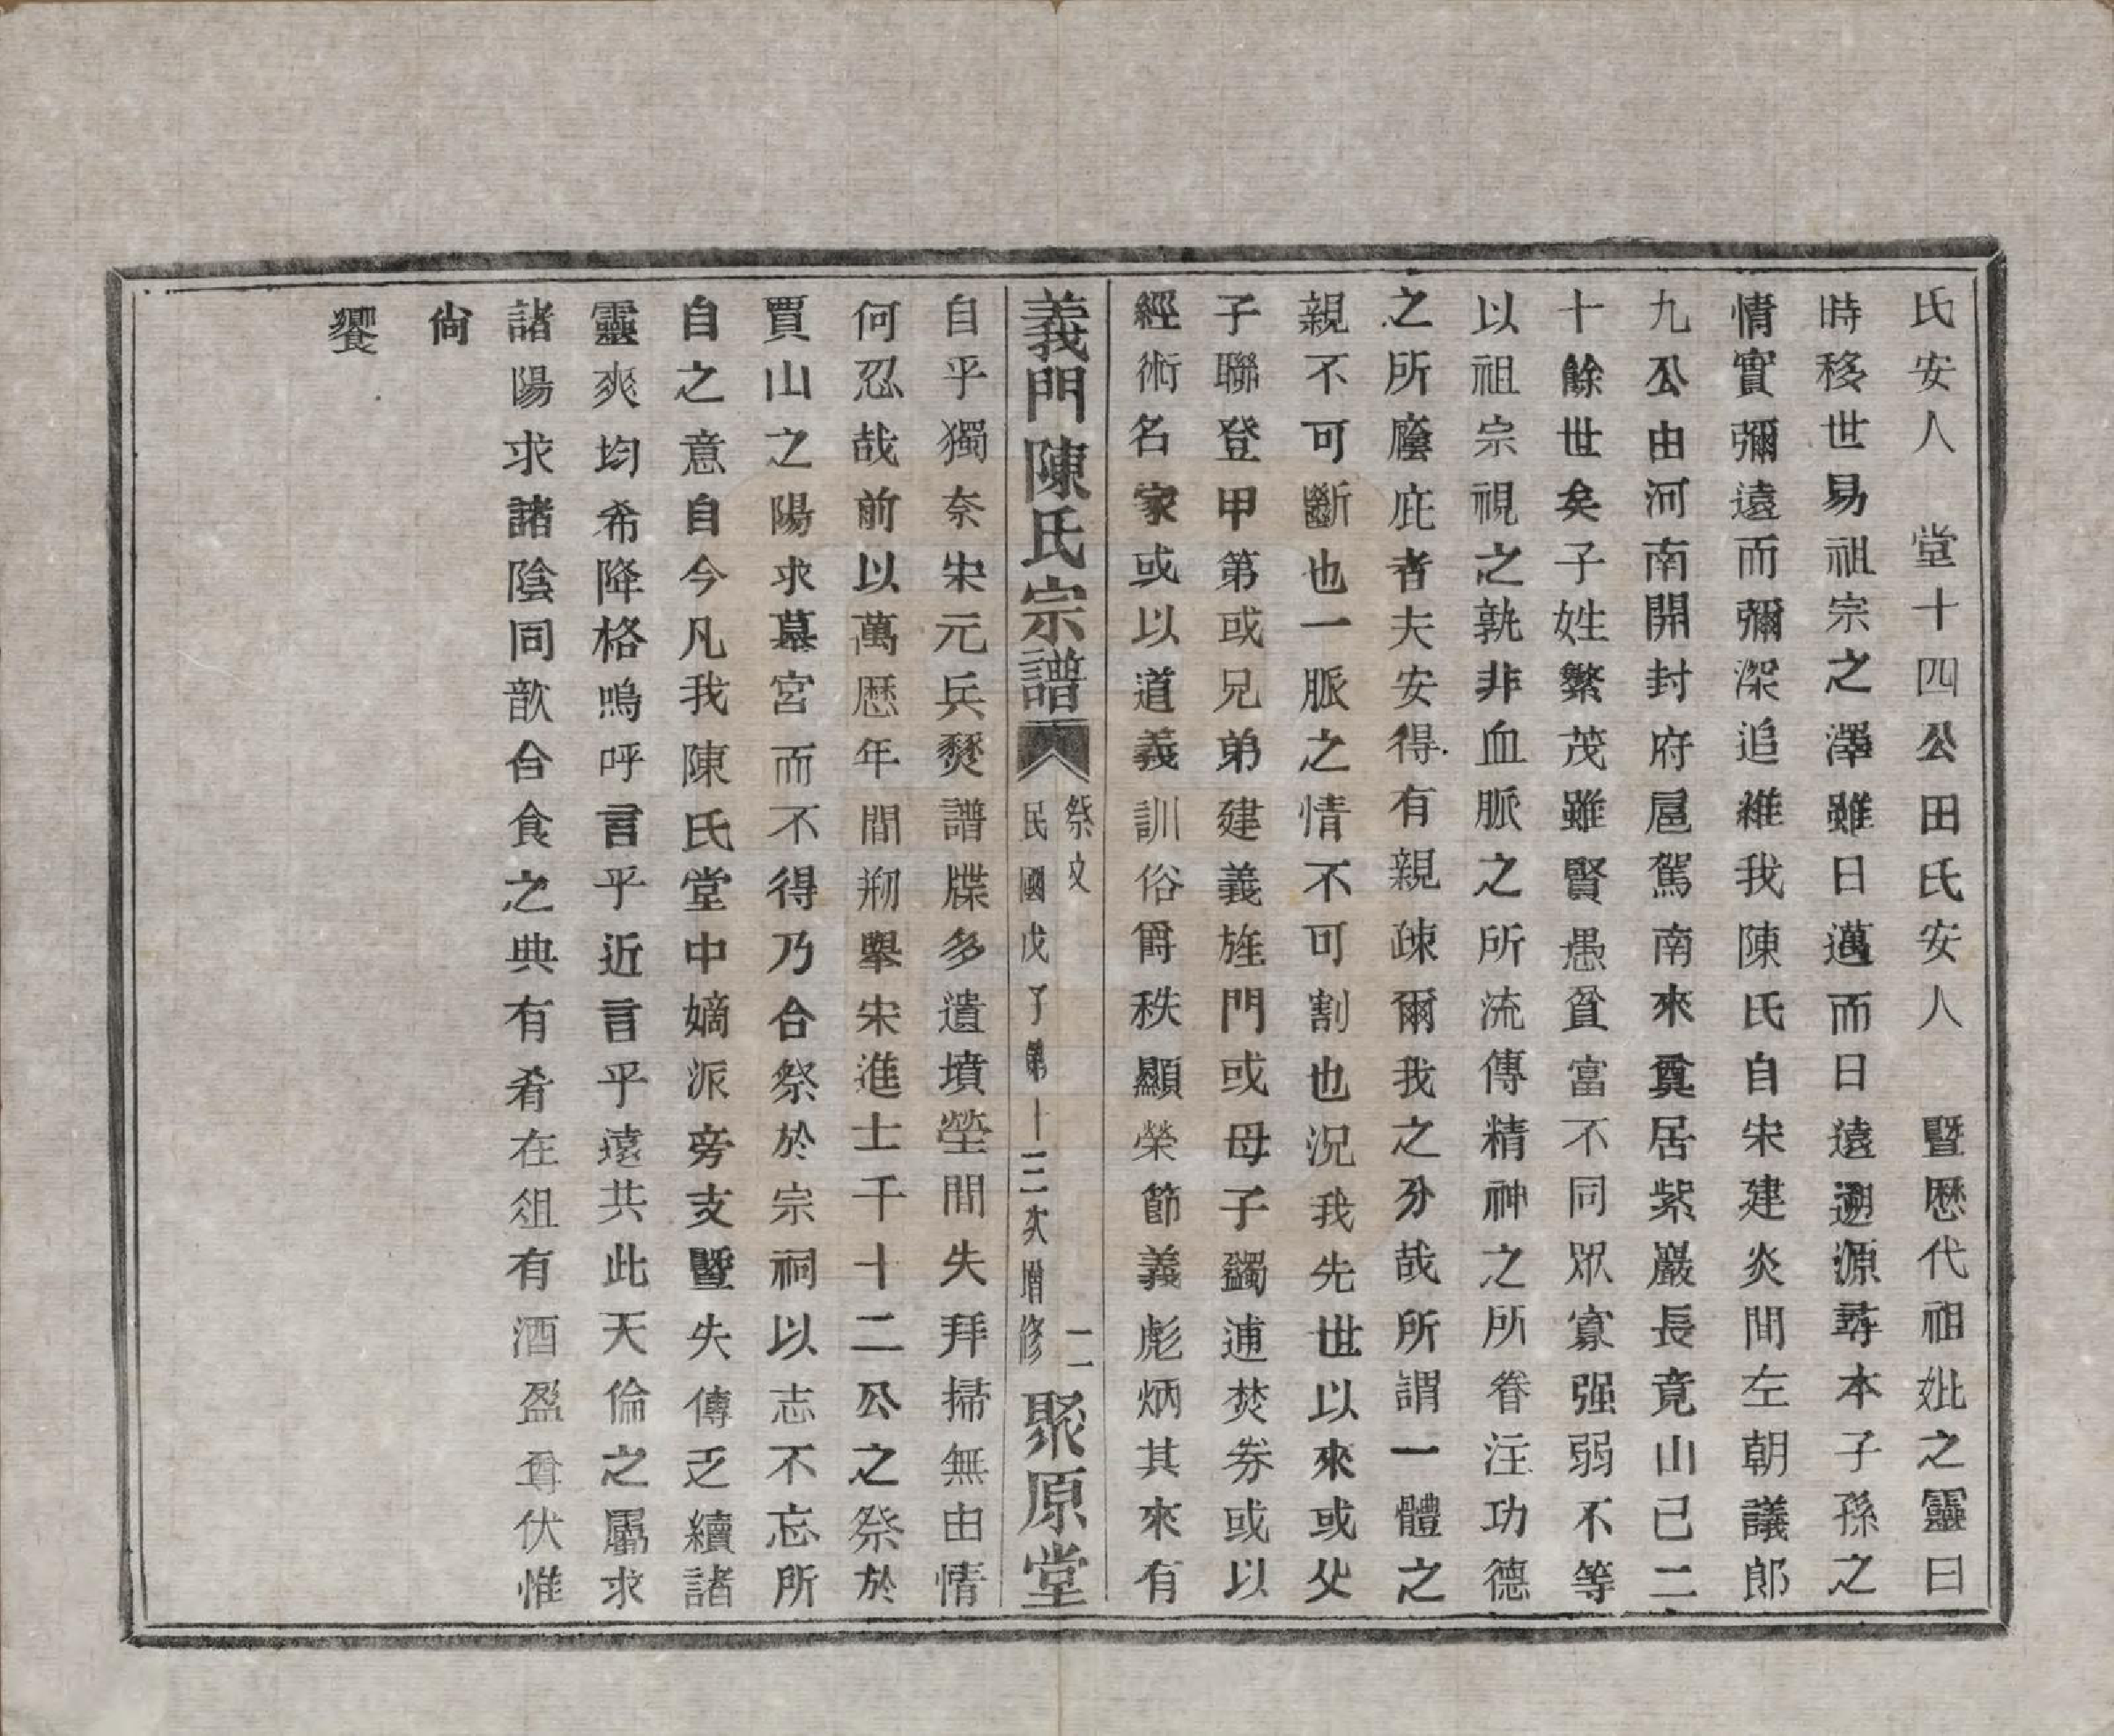 氏安人　堂十四公田氏安人　暨歷代祖妣之靈曰
時移世易祖宗之澤雖日邁而日遠遡源尋本子孫之
情實彌遠而彌深追維我陳氏自宋建炎間左朝議郎
九公由河南開封府扈駕南來奠居紫巖長竟山已二
十餘世矣子姓繁茂雖賢愚貧富不同眾寡强弱不等
以祖宗視之孰非血脈之所流傳精神之所眷注功德
之所廕庇者夫安得有親疎爾我之分哉所謂一體之
親不可斷也一脈之情不可割也況我先世以來或父
子聯登甲第或兄弟建義旌門或母子蠲逋焚券或以
經術名家或以道義訓俗爵秩顯榮節義彪炳其來有
義門陳氏宗譜　祭文　民國戊子第十三次增修　二　聚原堂
自乎獨奈宋元兵燹譜牒多遺墳塋間失拜掃無由情
何忍哉前以萬歷年間刱舉宋進士千十二公之祭於
賈山之陽求墓宮而不得乃合祭於宗祠以志不忘所
自之意自今凡我陳氏堂中嫡派旁支暨失傳乏續諸
靈爽均希降格嗚呼言乎近言乎遠共此天倫之屬求
諸陽求諸陰同歆合食之典有肴在俎有酒盈尊伏惟
尙
饗